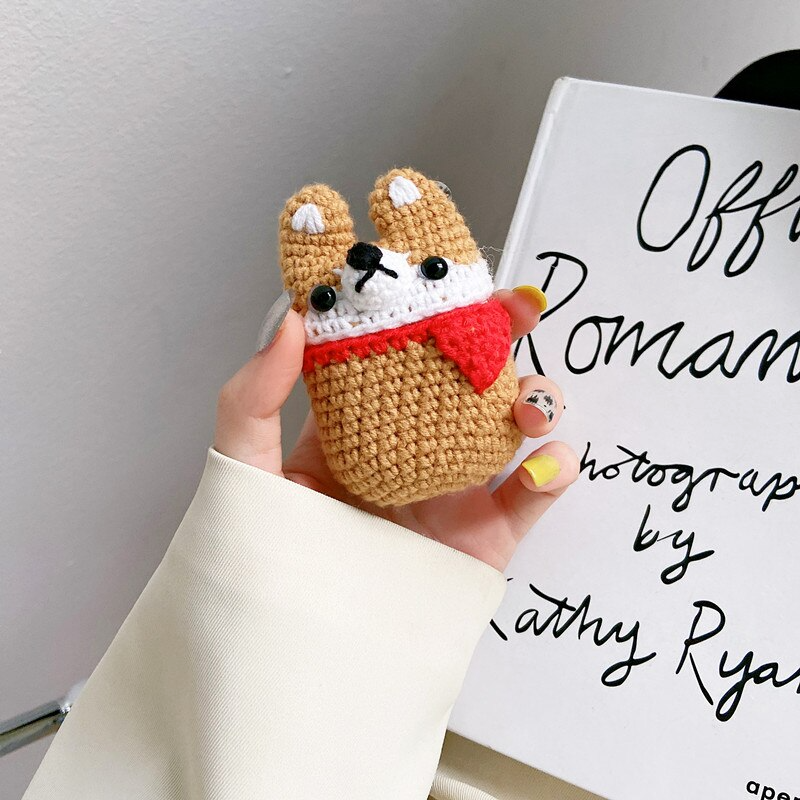 Offi
Roman
hotograp
by
Kathy Ryan
aper